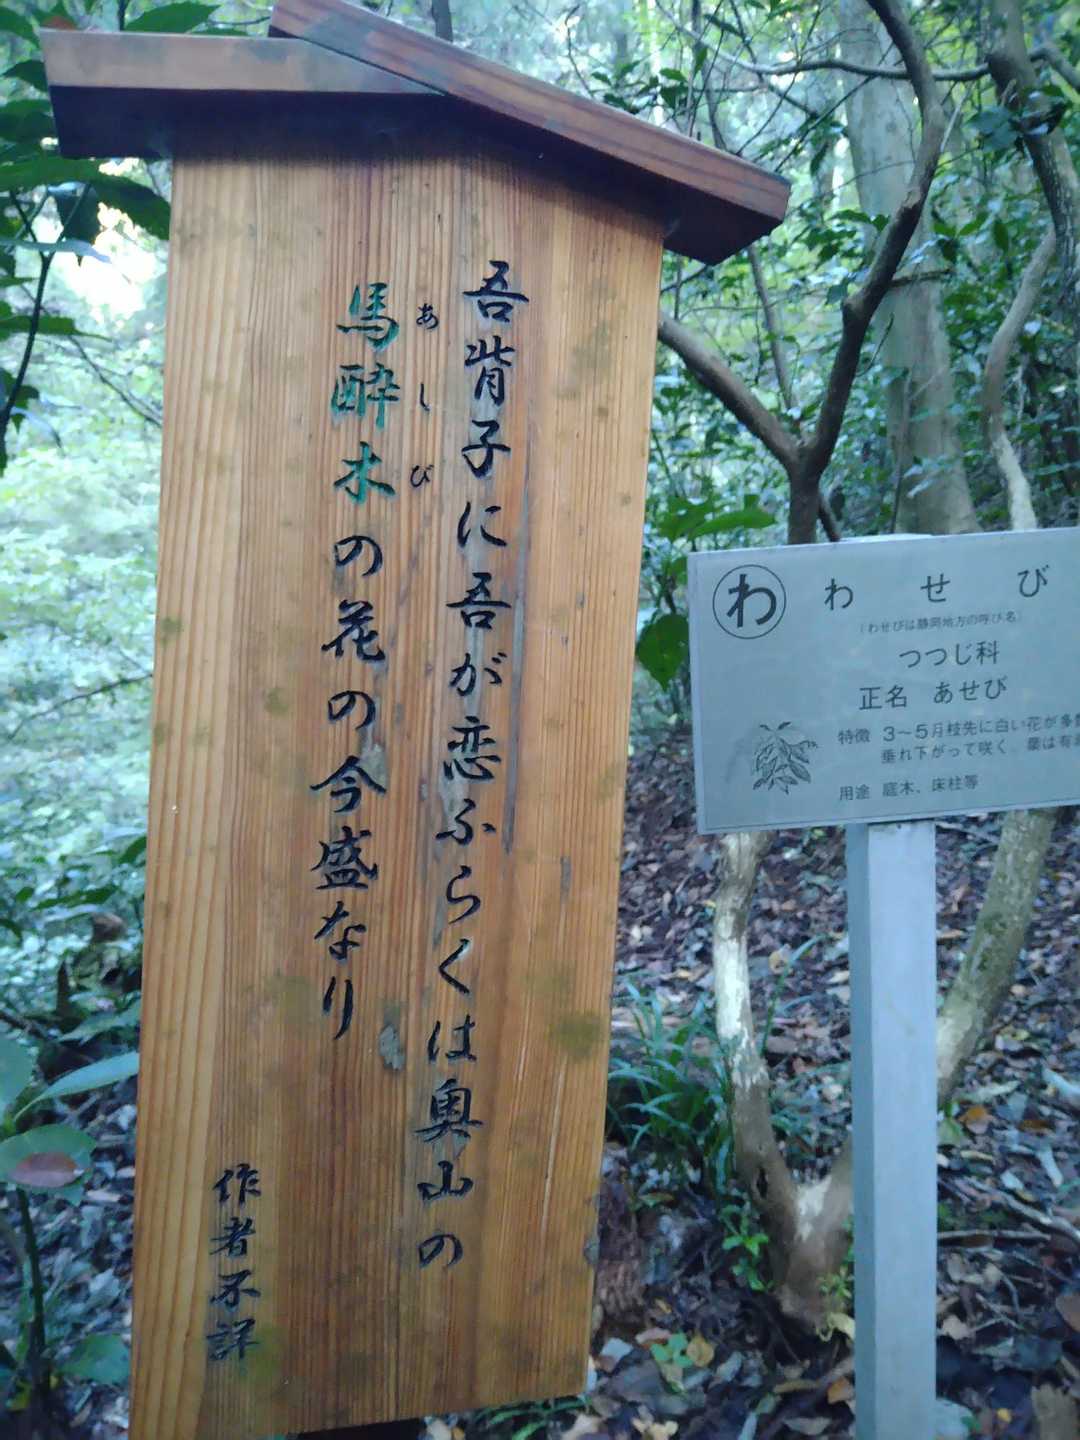 吾背子に吾が恋ふらくは奥山の
あしび
馬酔木の花の今盛なり
作者不詳
わ
わせび
(わせびは静岡地方の呼び名)
つつじ科
正名 あせび
特徴 3〜5月枝先に白い花が多
垂れ下がって咲く。葉は有
用途 庭木、床柱等